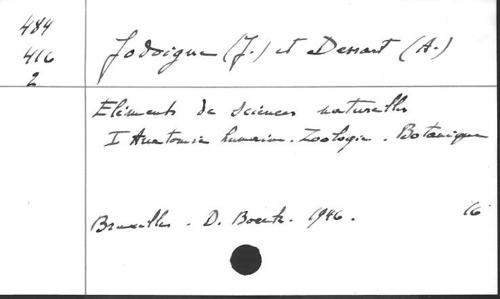 484
416
2
Jodoigne (J.) et Dessart (A.)
Eléments de sciences naturelles
I Anatomie humaine. Zoologie. Botanique
Bruxelles. D. Boeck. 1946. 16